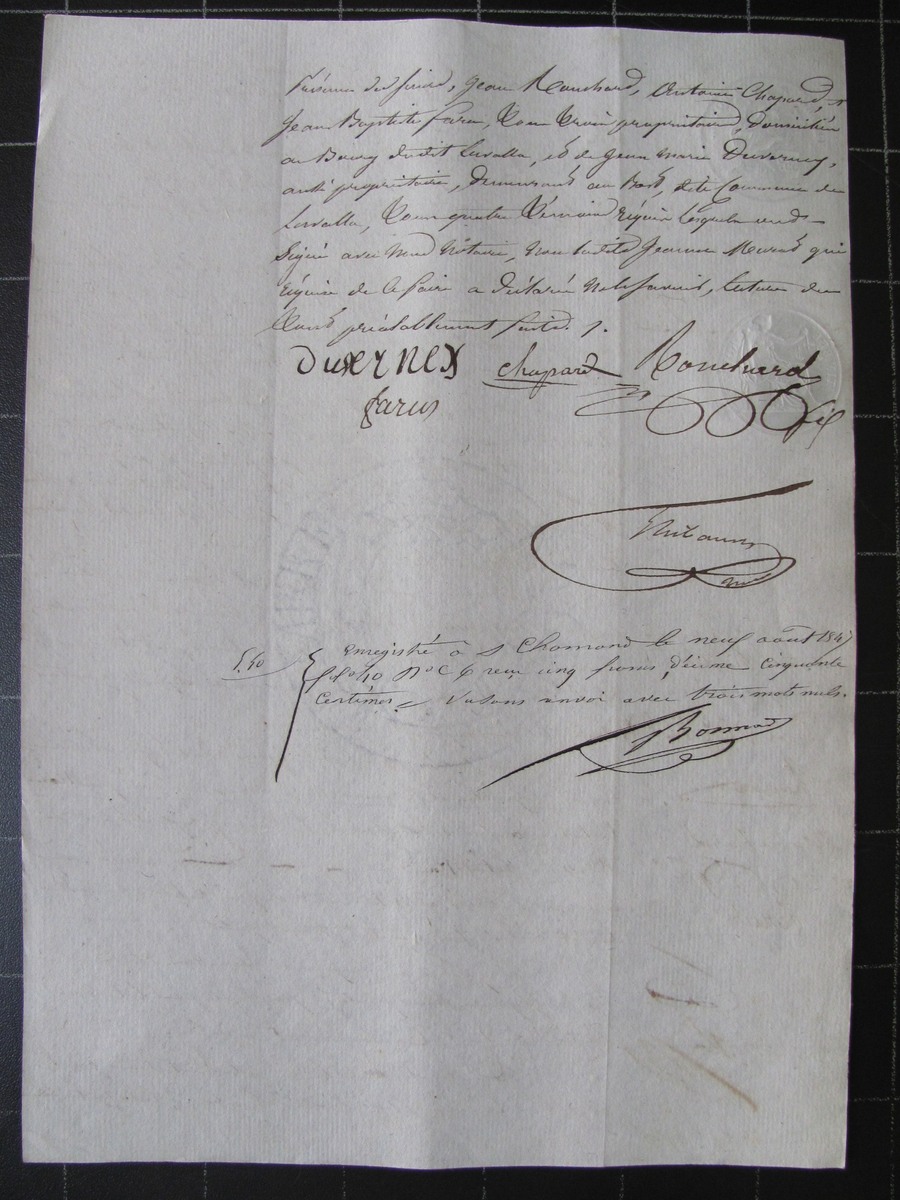 Présence des sieurs, Jean Rouchard, Antoine Chapard, et
Jean Baptiste farus, Tous Trois propriétaires, domiciliés
au Bourg dudit Lavalla, et de Jean Marie Duverney,
aussi propriétaire, demeurant au dite Commune de
Lavalla, Tous quatre Témoins Réquis lesquels ont
Signé avec Nous Notaire, Non ladite Jeanne qui
réquise de le faire a déclaré Ne le Savoir, lecture du
Tout préalablement faite.
DUVERNEY chapard Rouchard
farus fils
enregistré à St Chamond le neuf août 1847
5.50 fo 10 No C 6 reçu cinq francs, décime cinquante
Centimes avec trois mots nuls.